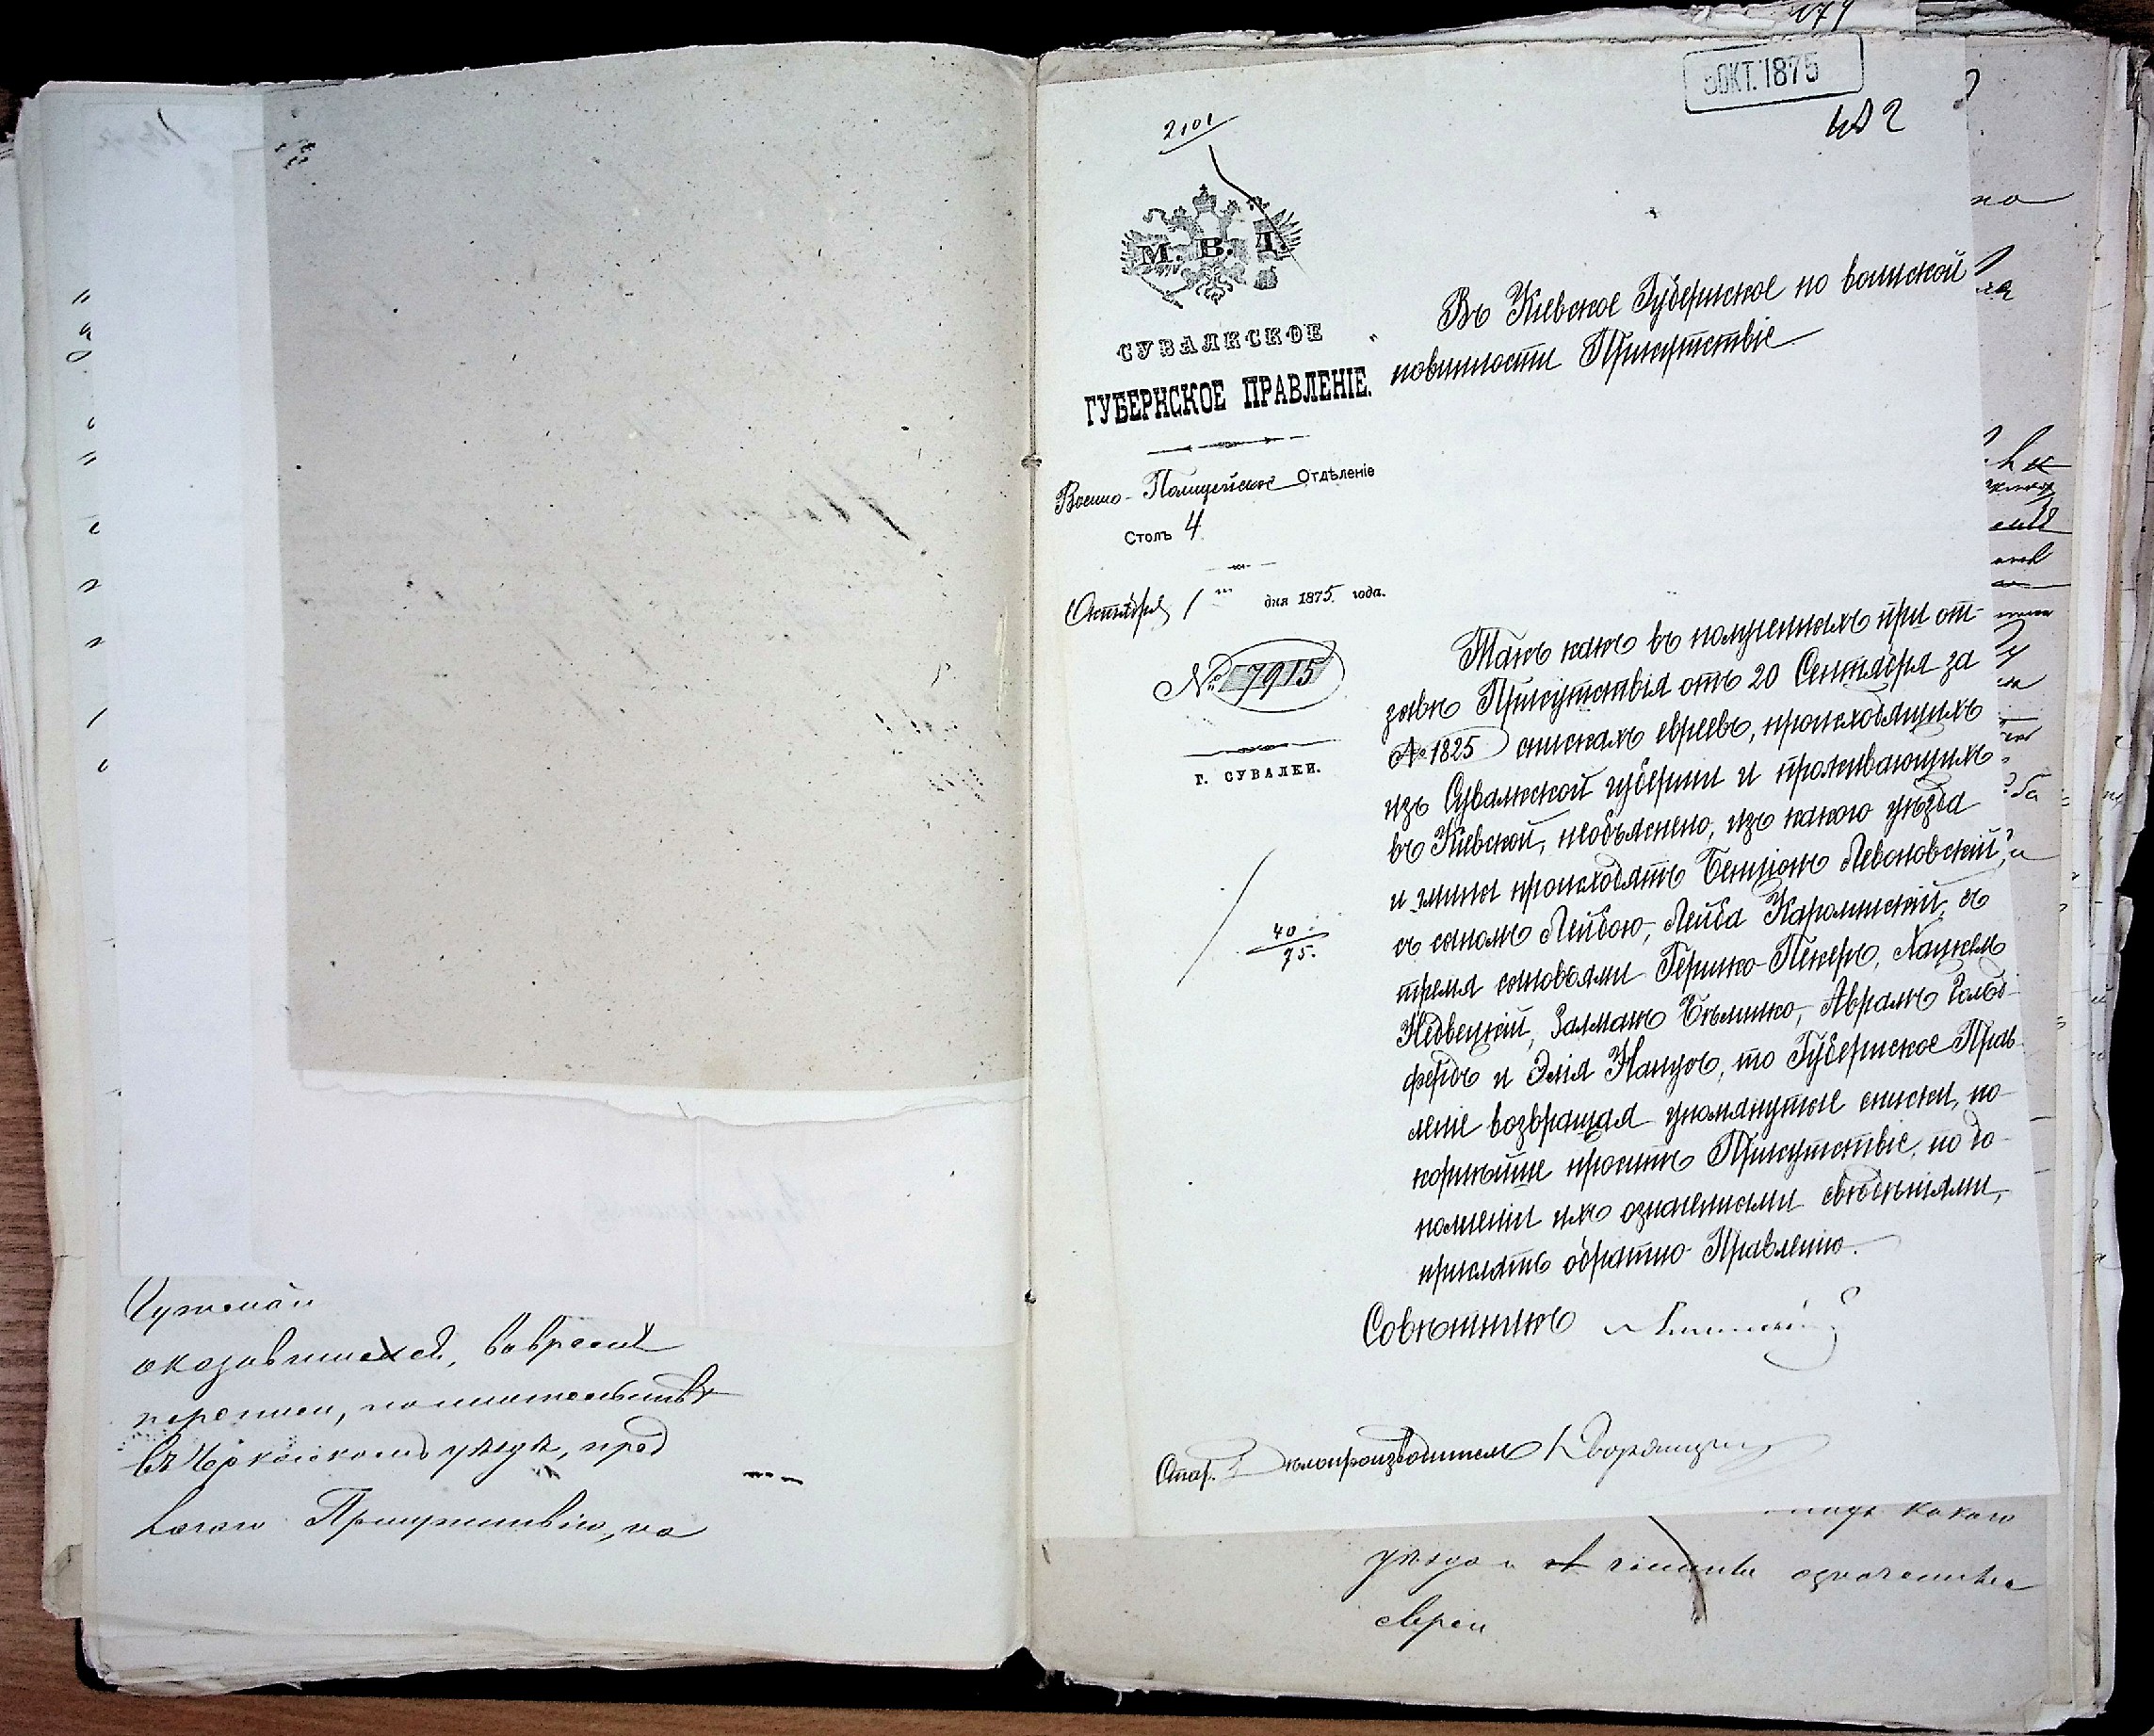 Чужокай
оказавшихся, вовремя
переписи, на жительстве
въ Черкасскомъ уѣздѣ, пред
Присутствію, на
5 ОКТ. 1875
2101
М. В. Д.
СУВАЛКСКОЕ
ГУБЕРНСКОЕ ПРАВЛЕНІЕ.
Военно-Полицейское Отдѣленіе
Столъ 4
Октября 1 дня 1875 года.
№ 7915
Г. СУВАЛКИ.
40
75.
Въ Кіевское Губернское по воинской
повинности Присутствіе
Такъ какъ въ полученныхъ при от-
зывѣ Присутствія отъ 20 Сентября за
№ 1825 спискахъ евреевъ, происходящихъ
изъ Сувалкской губерніи и проживающихъ
въ Кіевской, необъяснено, изъ какого уѣзда
и гмины происходятъ Бенціонъ Левоновскій,
съ сыномъ Лейбою, Лейба Каролинскій, съ
тремя сыновьями Гершко-Пекеръ, Хацкель
Недвецкій, Залманъ Бѣлишко, Абрамъ Голь-
фейдъ и Элія Канцъ, то Губернское Прав-
леніе возвращая упомянутые списки, по-
корнѣйше проситъ Присутствіе, по до-
полненіи ихъ означенными свѣдѣніями,
прислать обратно Правленію.
Совѣтникъ
Стар. Дѣлопроизводитель
какого
уѣзда и гмины означенные
евреи